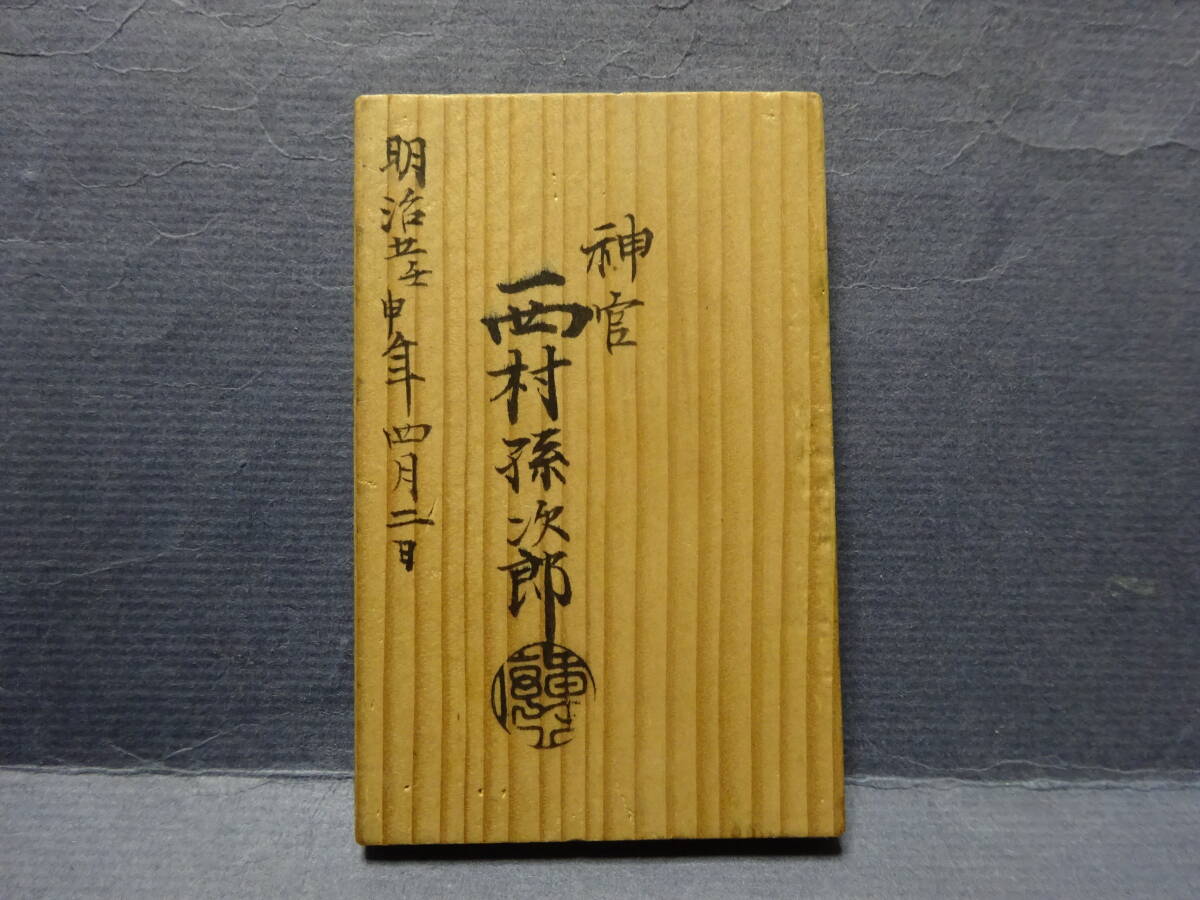 神官
西村孫次郎
明治五壬申年四月二日